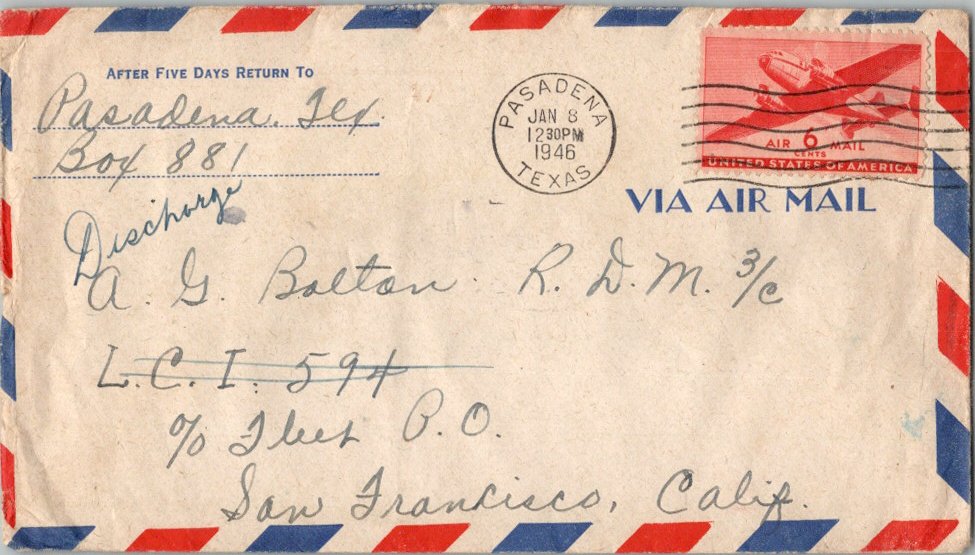 AFTER FIVE DAYS RETURN TO
Pasadena. Tex.
Box 881
PASADENA
JAN 8
1230PM
1946
TEXAS
AIR 6 MAIL
CENTS
UNITED STATES OF AMERICA
VIA AIR MAIL
Discharge
A. G. Bolton R. D. M. 3/c
L. C. I. 594
c/o Fleet P. O.
San Francisco, Calif.